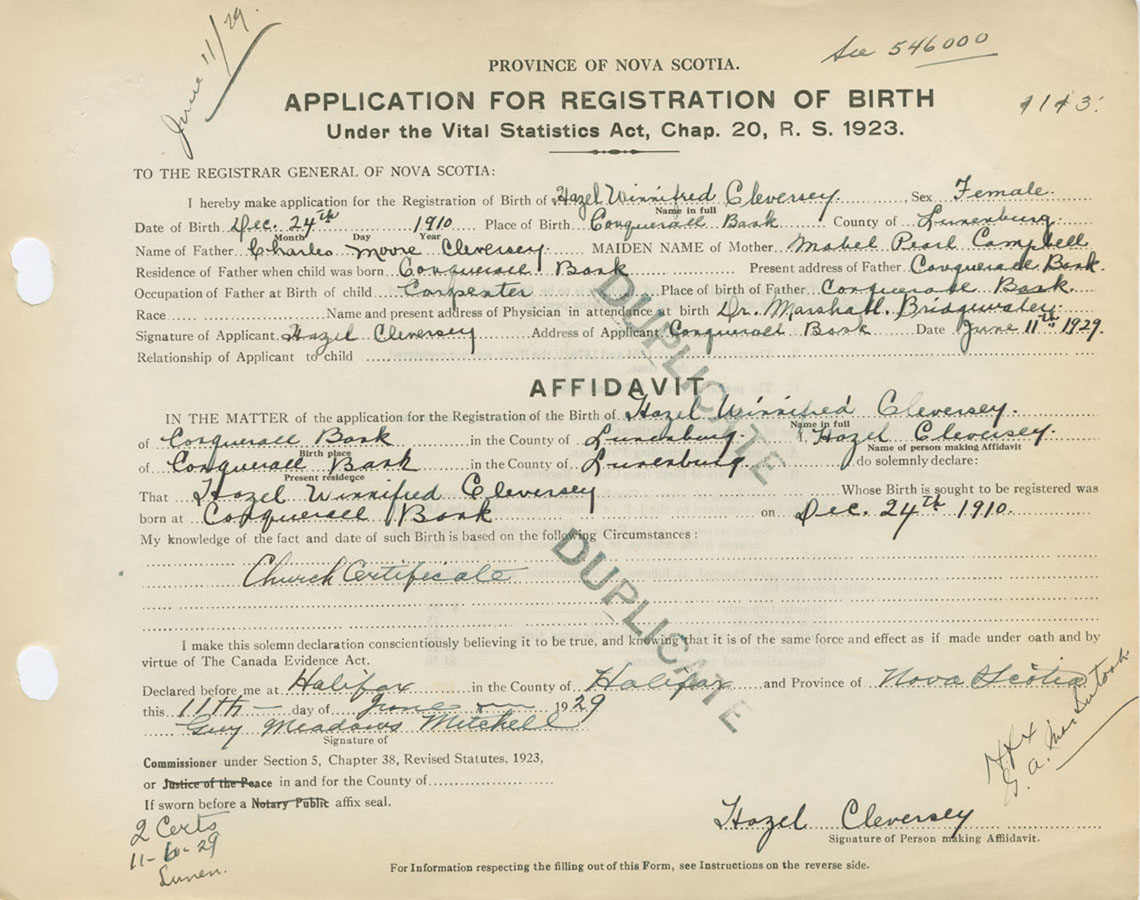 June 11/29.
See 546000
PROVINCE OF NOVA SCOTIA.
APPLICATION FOR REGISTRATION OF BIRTH
Under the Vital Statistics Act, Chap. 20, R. S. 1923.
TO THE REGISTRAR GENERAL OF NOVA SCOTIA:
I hereby make application for the Registration of Birth of Hazel Winnifred Cleversey Sex Female.
Name in full
Date of Birth Dec. 24th 1910 Place of Birth Conquerall Bank County of Lunenburg.
Month Day Year
Name of Father Charles Moore Cleversey. MAIDEN NAME of Mother Mabel Pearl Campbell
Residence of Father when child was born Conquerall Bank Present address of Father Conquerall Bank.
Occupation of Father at Birth of child Carpenter Place of birth of Father Conquerall Bank.
Race Name and present address of Physician in attendance at birth Dr. Marshall. Bridgewater.
Signature of Applicant Hazel Cleversey Address of Applicant Conquerall Bank Date June 11th 1929.
Relationship of Applicant to child
DUPLICATE
AFFIDAVIT
IN THE MATTER of the application for the Registration of the Birth of Hazel Winnifred Cleversey.
Name in full
of Conquerall Bank in the County of Lunenburg. I, Hazel Cleversey.
Birth place Name of person making Affidavit
of Conquerall Bank in the County of Lunenburg do solemnly declare:
Present residence
That Hazel Winnifred Cleversey Whose Birth is sought to be registered was
born at Conquerall Bank on Dec. 24th 1910.
My knowledge of the fact and date of such Birth is based on the following Circumstances:
Church Certificate
DUPLICATE
I make this solemn declaration conscientiously believing it to be true, and knowing that it is of the same force and effect as if made under oath and by
virtue of The Canada Evidence Act.
Declared before me at Halifax in the County of Halifax and Province of Nova Scotia
this 11th day of June 1929
Guy Meadows Mitchell
Signature of
Commissioner under Section 5, Chapter 38, Revised Statutes, 1923,
or Justice of the Peace in and for the County of
If sworn before a Notary Public affix seal.
2 Certs
11-6-29
Lunen.
Hazel Cleversey
Signature of Person making Affidavit.
For Information respecting the filling out of this Form, see Instructions on the reverse side.